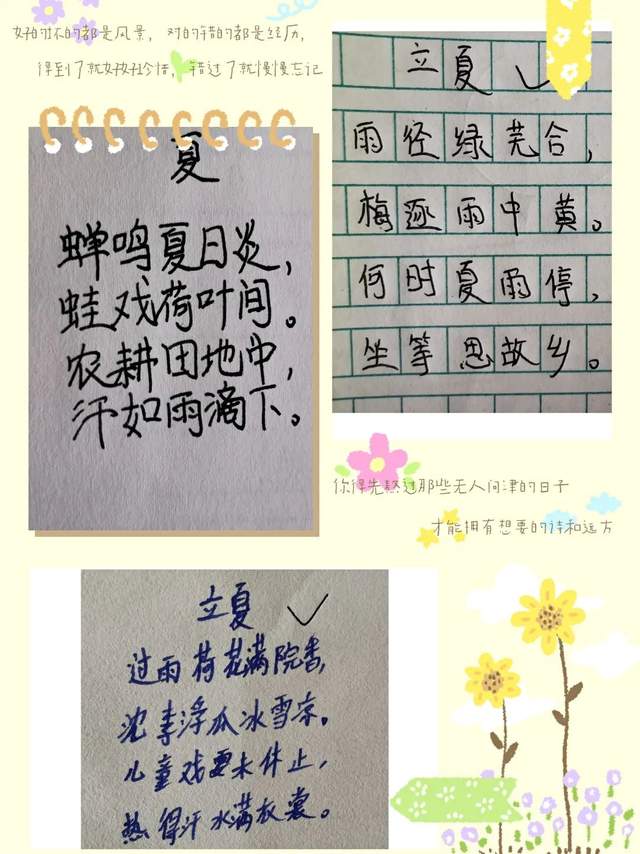 好的坏的都是风景，对的错的都是经历，
得到了就好好珍惜，错过了就慢慢忘记
夏
蝉鸣夏日炎，
蛙戏荷叶间。
农耕田地中，
汗如雨滴下。
立夏
雨径绿芜合，
梅逐雨中黄。
何时夏雨停，
坐等思故乡。
你得先熬过那些无人问津的日子
才能拥有想要的诗和远方
立夏
过雨荷花满院香，
沈李浮瓜冰雪凉。
儿童戏耍未休止，
热得汗水满衣裳。